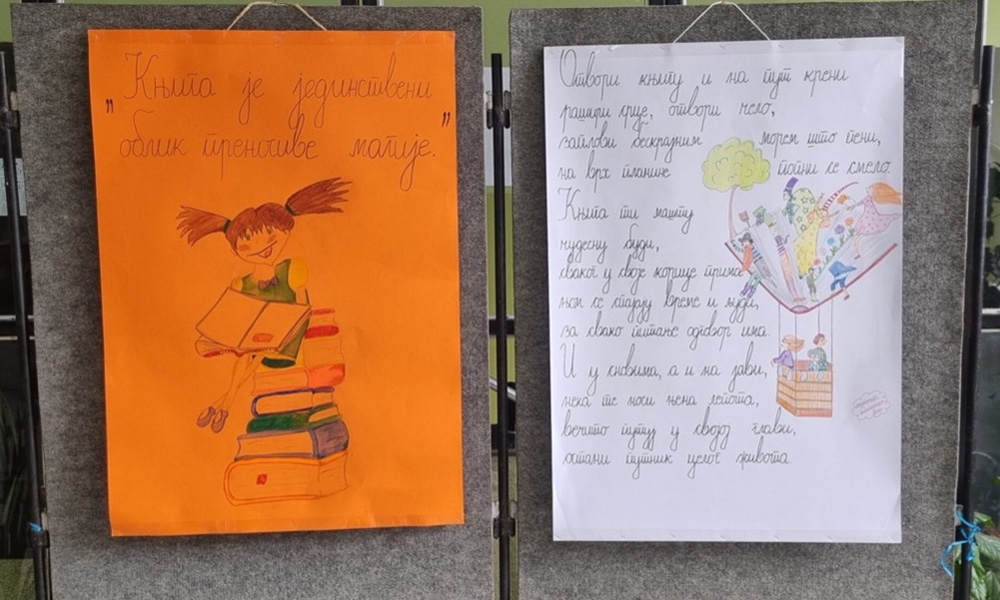 „Књига је јединствени
облик преносиве магије.”
Отвори књигу и на пут крени
рашири срце, отвори чело,
заплови бескрајним морем што пени,
на врх планине попни се смело.
Књига ти машту
чудесну буди,
сваког у своје корице прима
њом се спајају време и људи,
за свако питање одговор има.
И у сновима, а и на јави,
нека те носи њена лепота,
вечито путуј у својој глави,
остани путник целог живота.